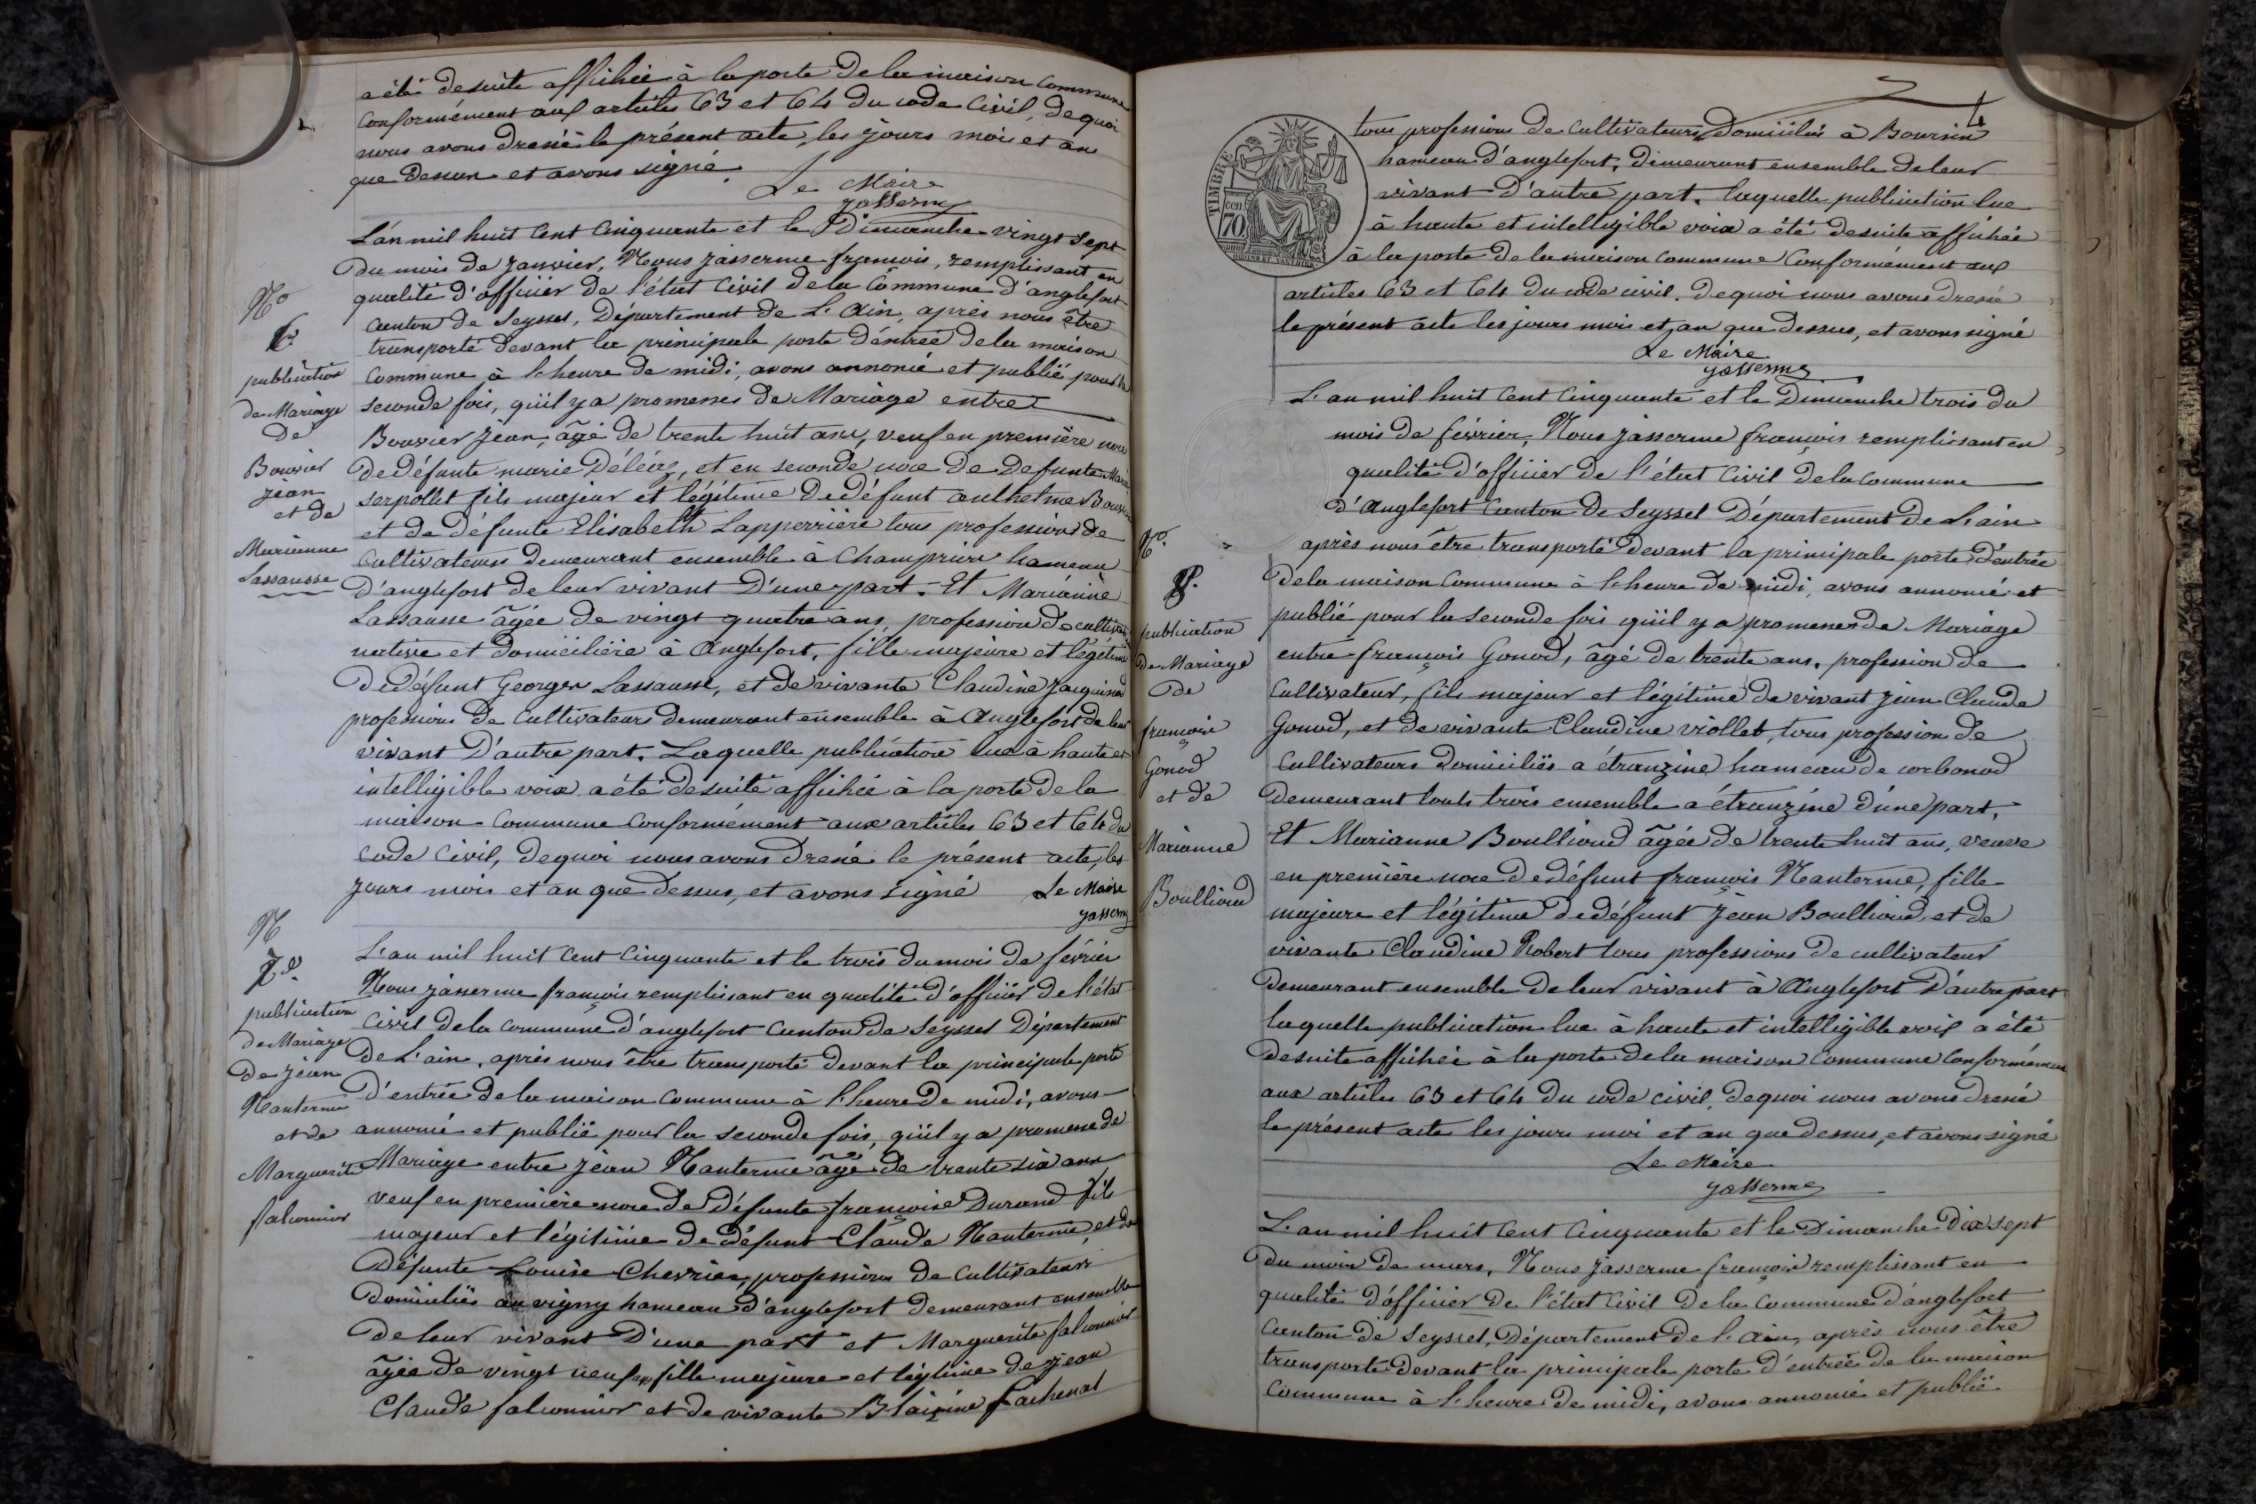 a été desuite affichée à la porte de la maison commune
conformément aux articles 63 et 64 du code civil, de quoi
nous avons dressé le présent acte, les jours mois et an
que dessus et avons signé
Le Maire
Jasserme
L'an mil huit cent cinquante et le Dimanche vingt sept
du mois de janvier, Nous jasserme francois, remplissant en
qualité d'officier de l'état civil de la Commune d'anglefort
canton de Seyssel, Département de L'Ain, après nous être
transporté devant la principale porte d'éntrée de la maison
commune à l'heure de midi, avons annoncé et publié pour la
seconde fois, qu'il y a promesses de Mariage entre
Bouvier jean, âgé de trente huit ans, veuf en première noce
de défunte marie Déléaz, et en seconde noce de Defunte Marie
serpollet fils majeur et légitime de défunt anthelme Bouvier
et de défunte Elisabeth Lapperrière tous professions de
cultivateurs demeurant ensemble à Champrion hameau
d'anglefort de leur vivant D'une part. Et Marianne
Lassausse âgée de vingt quatre ans, profession de cultivat
native et domicilière à Anglefort, fille majeure et légitime
de défunt Georges Lassausse, et de vivante Claudine Jacquinod
professions de cultivateurs demeurant ensemble à Anglefort de leur
vivant D'autre part. Laquelle publication lue à haute et
intelligible voix a été desuite affichée à la porte de la
maison commune conformément aux articles 63 et 64 du
code civil, de quoi nous avons dressé le présent acte, les
jours mois et an que dessus, et avons signé Le Maire
Jasserme
N°
6.
publication
de Mariage
de
Bouvier
jean
et de
Marianne
Lassausse
L'an mil huit cent cinquante et le trois du mois de février
Nous jasserme françois remplissant en qualité d'officier de l'état
civil de la commune d'anglefort canton de Seyssel Département
de L'ain, après nous être transporté devant la principale porte
d'entrée de la maison commune à l'heure de midi, avons
annoncé et publié pour la seconde fois, qu'il y a promesse de
Mariage entre jean Nanterme âgé de trente six ans
veuf en première noce de Défunte françoise Durand fils
majeur et légitime de défunt Claude Nanterme, et de
Défunte Louise Chevrier, professions de cultivateurs
domiciliés au vigny hameau d'anglefort demeurant ensemble
de leur vivant D'une part et Marguerite falconnier
âgée de vingt neuf fille majeure et légitime de jean
Claude falconnier et de vivante Blaisine Lachenal
N
7e.
publication
de Mariage
de jean
Nanterme
et de
Marguerite
falconnier
TIMBRE
cen
70
tous professions de cultivateurs Domiciliés à Boursin
hameau d'anglefort, demeurant ensemble de leur
vivant D'autre part. laquelle publication lue
à haute et intelligible voix a été desuite affichée
à la porte de la maison commune conformément aux
articles 63 et 64 du code civil. de quoi nous avons dressé
le présent acte les jours mois et an que dessus, et avons signé
Le Maire
Jasserme
L'an mil huit cent cinquante et le Dimanche trois du
mois de février, Nous jasserme françois remplissant en
qualité d'officier de l'état civil de la commune
d'Anglefort canton de Seyssel Département de L'ain
après nous être transporté devant la principale porte d'entrée
de la maison commune à l'heure de midi, avons annoncé et
publié pour la seconde fois qu'il y a promesses de Mariage
entre françois Gonod, âgé de trente ans, profession de
cultivateur, fils majeur et légitime de vivant jean Claude
Gonod, et de vivante Claudine viollet, tous profession de
cultivateurs domiciliés a étranzine hameau de corbonod
demeurant touts trois ensemble a étranzine d'une part,
Et Marianne Boullioud âgée de trente huit ans, veuve
en première noce de défunt françois Nanterme, fille
majeure et légitime de défunt jean Boullioud et de
vivante Claudine Robert tous professions de cultivateur
demeurant ensemble de leur vivant à Anglefort D'autre part
laquelle publication lue à haute et intelligible voix a été
desuite affichée à la porte de la maison commune conformément
aux articles 63 et 64 du code civil, de quoi nous avons dressé
le présent acte les jours moi et an que dessus, et avons signé
Le Maire
Jasserme
N°.
8.
publication
de Mariage
de
françois
Gonod
et de
Marianne
Boullioud
L'an mil huit cent cinquante et le Dimanche dix sept
du mois de mars, Nous jasserme françois remplissant en
qualité d'officier de l'état civil de la commune d'anglefort
canton de Seyssel, Département de l'Ain, après nous être
transporté devant la principale porte d'entrée de la maison
commune à l'heure de midi, avons annoncé et publié